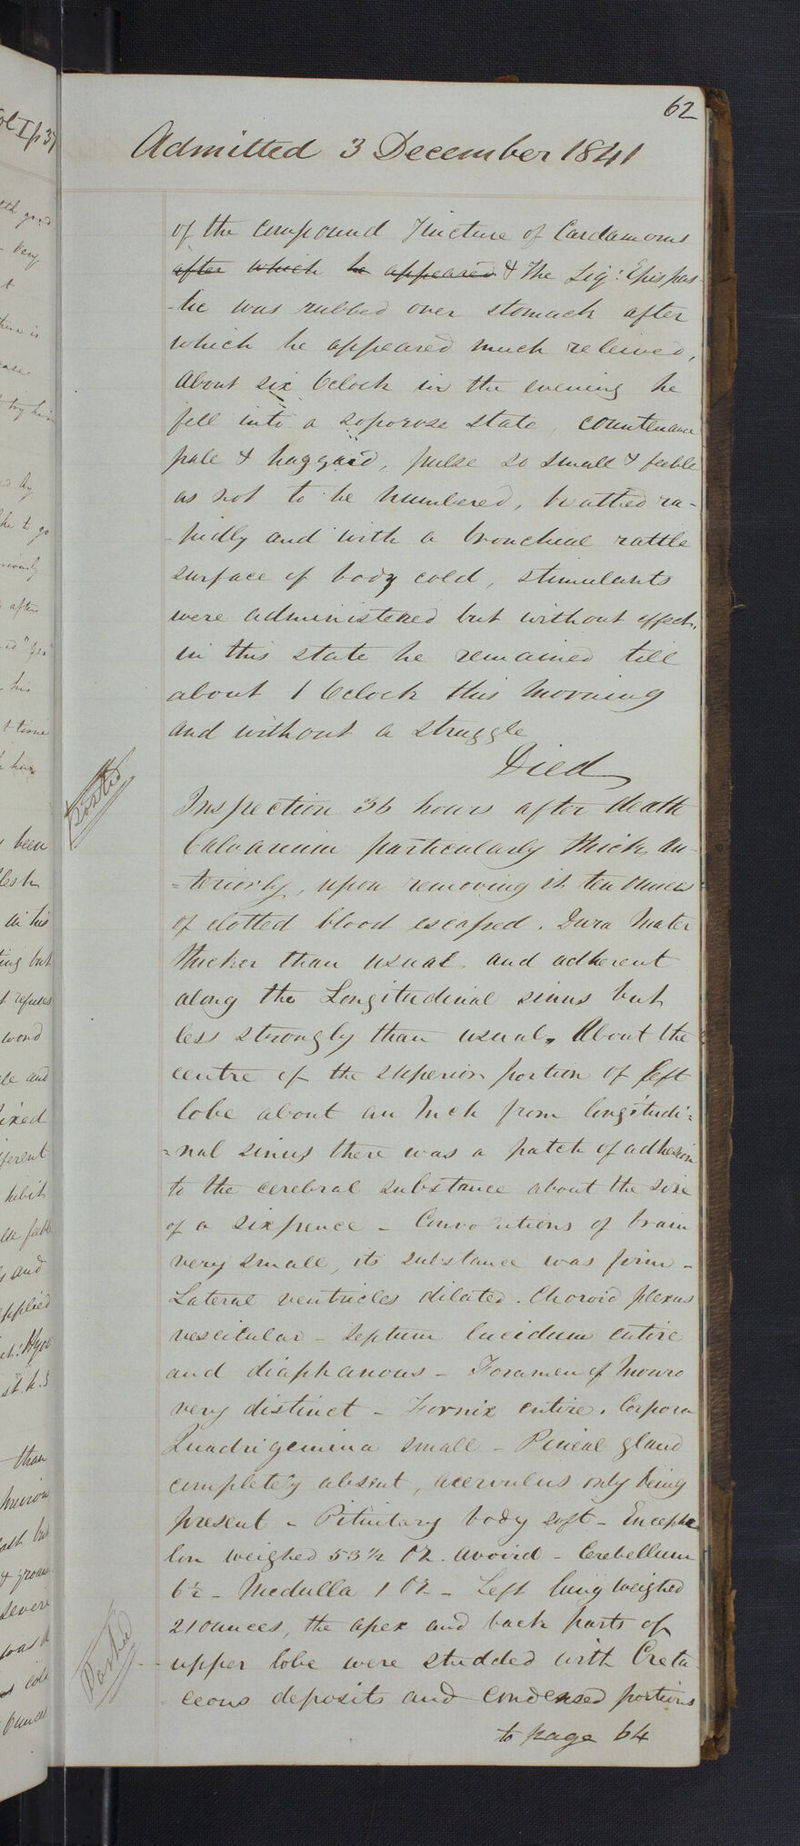 62
Admitted 3 December 1841
of the compound Tincture of Cardamoms
after which he appeared & The Liq: Epispas-
-tic was rubbed over stomach after
which he appeared much releived,
About six Oclock in the evening he
fell into a soporose state, countenance
pale & haggard, pulse so small & feeble
as not to be numbered, breathed ra-
-pidly and with a broncheal rattle
surface of body cold, stimulants
were administered but without effect,
in this state he remained till
about 1 Oclock this morning
and without a struggle
Died
Posted
Inspection 36 hours after death
Calvarium particularly thick an-
=teriorly, upon removing it ten ounces
of clotted blood escaped. Dura Mater
thicker than usual and adherent
along the Longitudinal sinus but
less strongly than usual. About the
centre of the superior portion of left
lobe about an Inch from longitudi=
=nal sinus there was a patch of adhesion
to the cerebral substance about the size
of a sixpence - Convolutions of brain
very small, its substance was firm -
Lateral ventricles dilated. Choroid plexus
vescicular - Septum lucidum entire
and diaphanous - Foramen of Monro
very distinct - Fornix entire. Corpora
Quadrigemina small - Pineal gland
completely absent, acervulus only being
present - Pituitary body soft - Encepha
lon weighed 53½ Oz. avoird - Cerebellum
6½ - Medulla 1 Oz - Left lung weighed
21 ounces, the apex and back parts of
Posted
upper lobe were studded with Creta
ceous deposits and condensed portions
to page 64